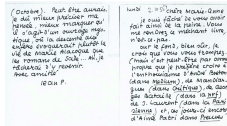 (Octobre). Peut être aurais
je dû mieux préciser ma
pensée, mieux marquer qu'
il s'agit d'un ouvrage myst
ique, où la descente aux
enfers évoquerait plutôt la
vie de Marie Alacoque que
les romans de Sade... Ai-je
réussi à m'y revenir.
Avec amitié
Jean P.
lundi.
Chère Marie-Anne
je suis fâché de vous avoir
fait ainsi de la peine. Vous
me rendrez ce méchant livre,
n'est-ce pas.
sur le fond, bien sûr, je
crois que vous vous trompez,
mais c'est peut-être par com
je préfère croire à
l'enthousiasme d'André
dans Médium), de Mandiar-
gues (dans Critique), de Geor
ges Bataille (dans la NRF)
de J. Laurent (dans La Pari
sienne) et, ces jours-ci encore
d'Aimé Patri dans Preuves